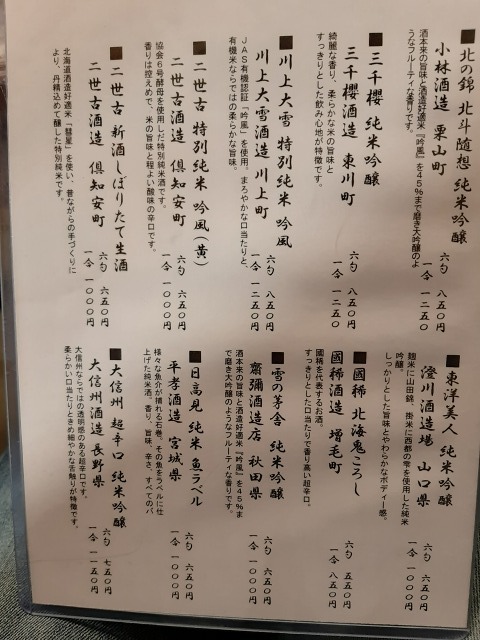 ■北の錦 北斗随想 純米吟醸
小林酒造 栗山町
酒本来の旨味と酒造好適米『吟風』を45%まで磨き大吟醸のよ
うなフルーティな香りです。
六勺 八五〇円
一合 一二五〇
■三千櫻 純米吟醸
三千櫻酒造 東川町
綺麗な香り、柔らかな米の旨味と
すっきりとした飲み心地が特徴です。
六勺 八五〇円
一合 一二五〇
■川上大雪 特別純米 吟風
川上大雪酒造 川上町
JAS有機認証「吟風」を使用。まろやかな口当たりと、
有機米ならではの柔らかな旨味。
六勺 八五〇円
一合 一二五〇円
■二世古 特別純米 吟風(黄)
二世古酒造 倶知安町
協会6号酵母を使用しだ特別純米酒です。
香りは控えめで、米の旨味と程よい酸味の辛口です。
六勺 六五〇円
一合 一〇〇〇円
■二世古 新酒しぼりたて生酒
二世古酒造 倶知安町
北海道酒造好適米「彗星」を使い、昔ながらの手づくりに
より、丹精込めて醸した特別純米です。
六勺 六五〇円
一合 一〇〇〇円
■東洋美人 純米吟醸
澄川酒造場 山口県
麹米に山田錦、掛米に西都の雫を使用した純米
吟醸。
しっかりとした旨味とやわらかなボディー感。
六勺 六五〇円
一合 一〇〇〇円
■國稀 北海鬼ころし
國稀酒造 増毛町
國稀を代表するお酒。
すっきりとした口当たりで香り高い超辛口。
六勺 五五〇円
一合 八五〇円
■雪の茅舎 純米吟醸
齋彌酒造店 秋田県
酒本来の旨味と酒造好適米『吟風』を45%ま
で磨き大吟醸のようなフルーティな香りです。
六勺 六五〇円
一合 一〇〇〇円
■日高見 純米 魚ラベル
平孝酒造 宮城県
様々な魚介が捕れる石巻。その魚をラベルに仕
上げた純米酒。香り、旨味、辛さ、すべてのバ
六勺 六五〇円
一合 一〇〇〇円
■大信州 超辛口 純米吟醸
大信州酒造 長野県
大信州ならではの透明感のある超辛口です。
柔らかい口当たりときめ細やかな舌触りが特徴です。
六勺 七五〇円
一合 一一五〇円